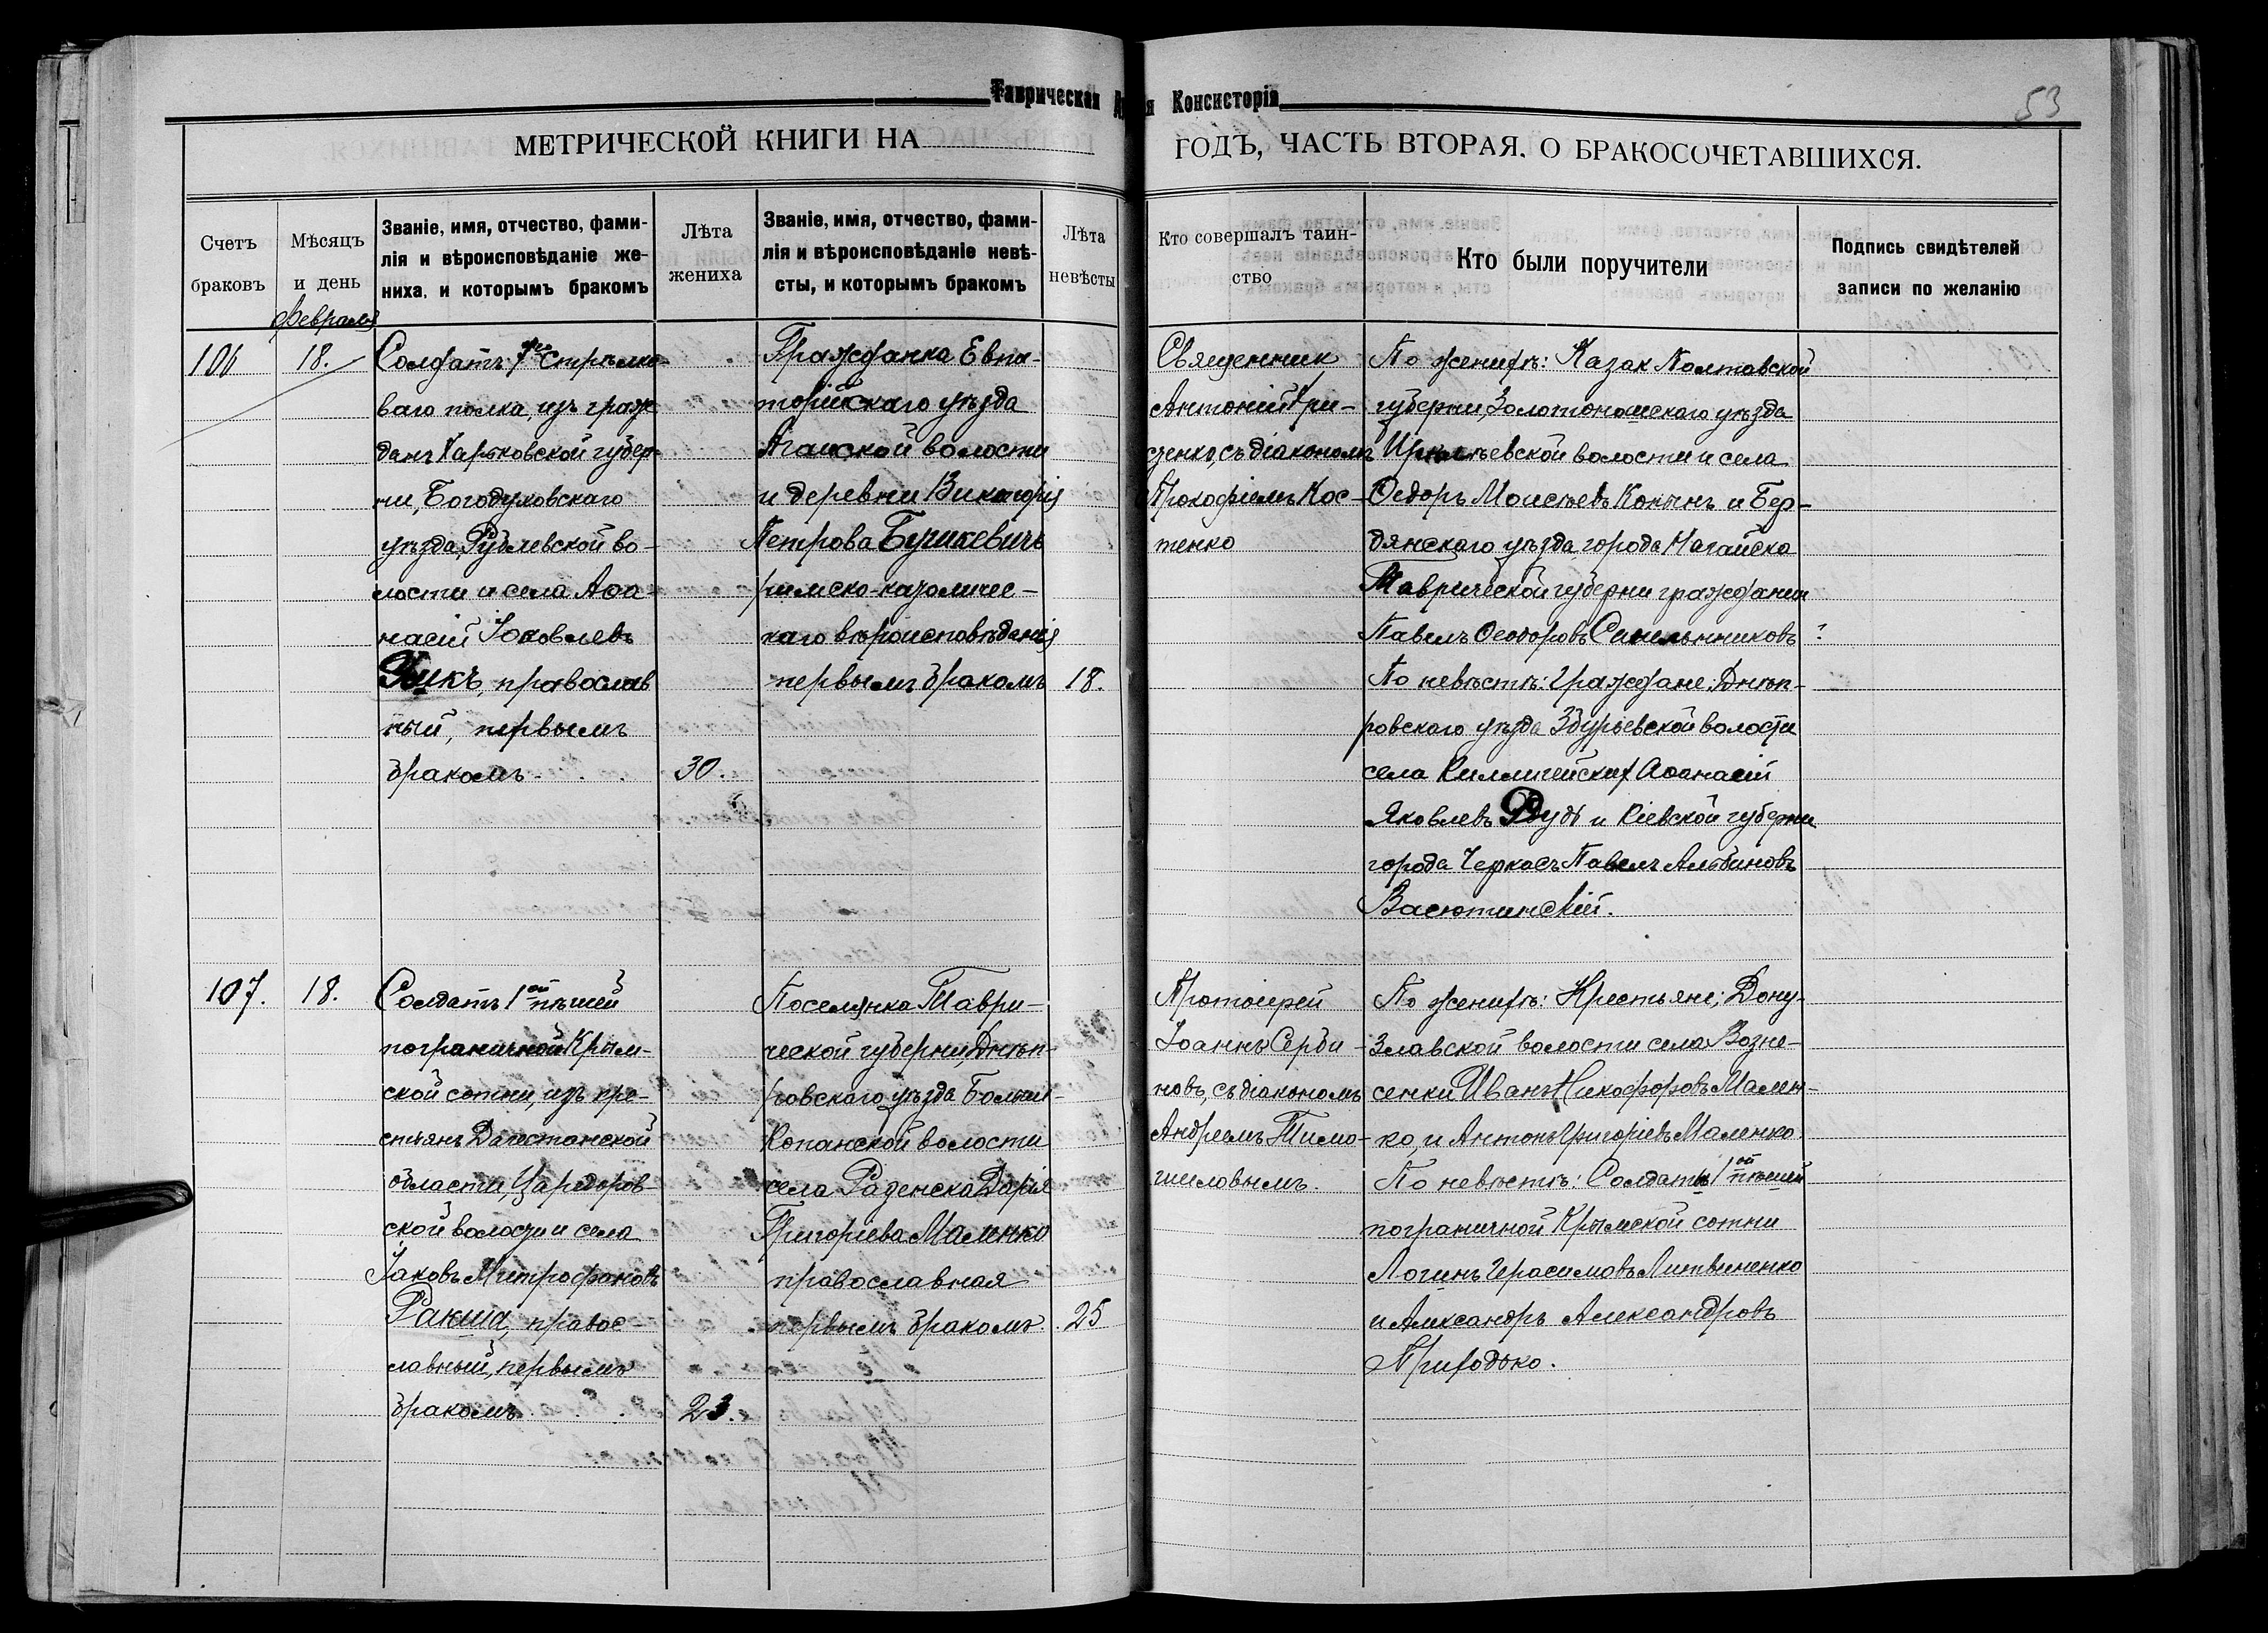 Таврическая
я Консисторія
53
МЕТРИЧЕСКОЙ КНИГИ НА
ГОДЪ, ЧАСТЬ ВТОРАЯ, О БРАКОСОЧЕТАВШИХСЯ.
Счетъ
браковъ
Мѣсяцъ
и день
Званіе, имя, отчество, фами-
лія и вѣроисповѣданіе же-
ниха, и которымъ бракомъ
Лѣта
жениха
Званіе, имя, отчество, фами-
лія и вѣроисповѣданіе невѣ-
сты, и которымъ бракомъ
Лѣта
невѣсты
Кто совершалъ таин-
ство
Кто были поручители
Подпись свидѣтелей
записи по желанію
Февраля
106
18.
Солдатъ стрѣлко-
ваго полка, изъ граж
данъ Харьковской губер-
ни, Богодуховскаго
уѣзда, Рублевской во-
лости и села Аѳа-
насій Іаковлевъ
православ
ный, первымъ
бракомъ
30.
Гражданка Евпа-
торійскаго уѣзда
Агайской волости
и деревни Викторія
Петрова Бучкевичъ
римско-католичес-
каго вѣроисповѣданія
первымъ бракомъ
18.
Священник
Антоній Гри-
ценко, съ діакономъ
Прокофіемъ Кос-
тенко
По женихѣ: Казак Полтавской
губерни, Золотоношскаго уѣзда
Ирклѣевской волости и села
Ѳедоръ Моисѣевъ Копынъ и Бер-
дянскаго уѣзда города Нагайска
Таврической губерни гражданин
Павелъ Ѳеодоровъ Синельниковъ
По невѣстѣ: Граждане: Днѣп-
ровскаго уѣзда Збурьевской волости
села Килигейских Аѳанасій
Яковлевъ Рудь и Кіевской губерни
города Черкасъ Павелъ Альбиновъ
Васютинскій.
107.
18.
Солдатъ 1ой пѣшей
пограничной Крым-
ской сотни, изъ кре-
стьянъ Дагестанской
области, Царедаров-
ской волости и села
Іаковъ Митрофановъ
Ракша, правос-
лавный, первымъ
бракомъ
23.
Поселянка Таври-
ческой губерни, Днѣп-
ровскаго уѣзда Больше-
Копанской волости
села Раденска Дарія
Григоріева Маленко
православная
первымъ бракомъ
25
Протоіерей
Іоаннъ Серби-
новъ, съ діакономъ
Андреемъ Тимо-
шиловымъ
По женихѣ: Крестьяне: Дону-
злавской волости села Возне-
сенки Иванъ Никифоровъ Мален-
ко, и Антонъ Григоріевъ Маленко
По невѣстѣ: Солдаты 1ой пѣшей
пограничной Крымской сотни
Логинъ Герасимовъ Литвиненко
и Александръ Александровъ
Приходько.